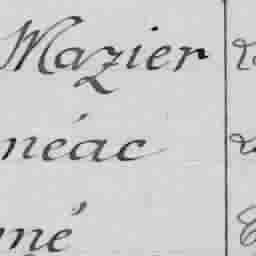 Mazier
néac
né